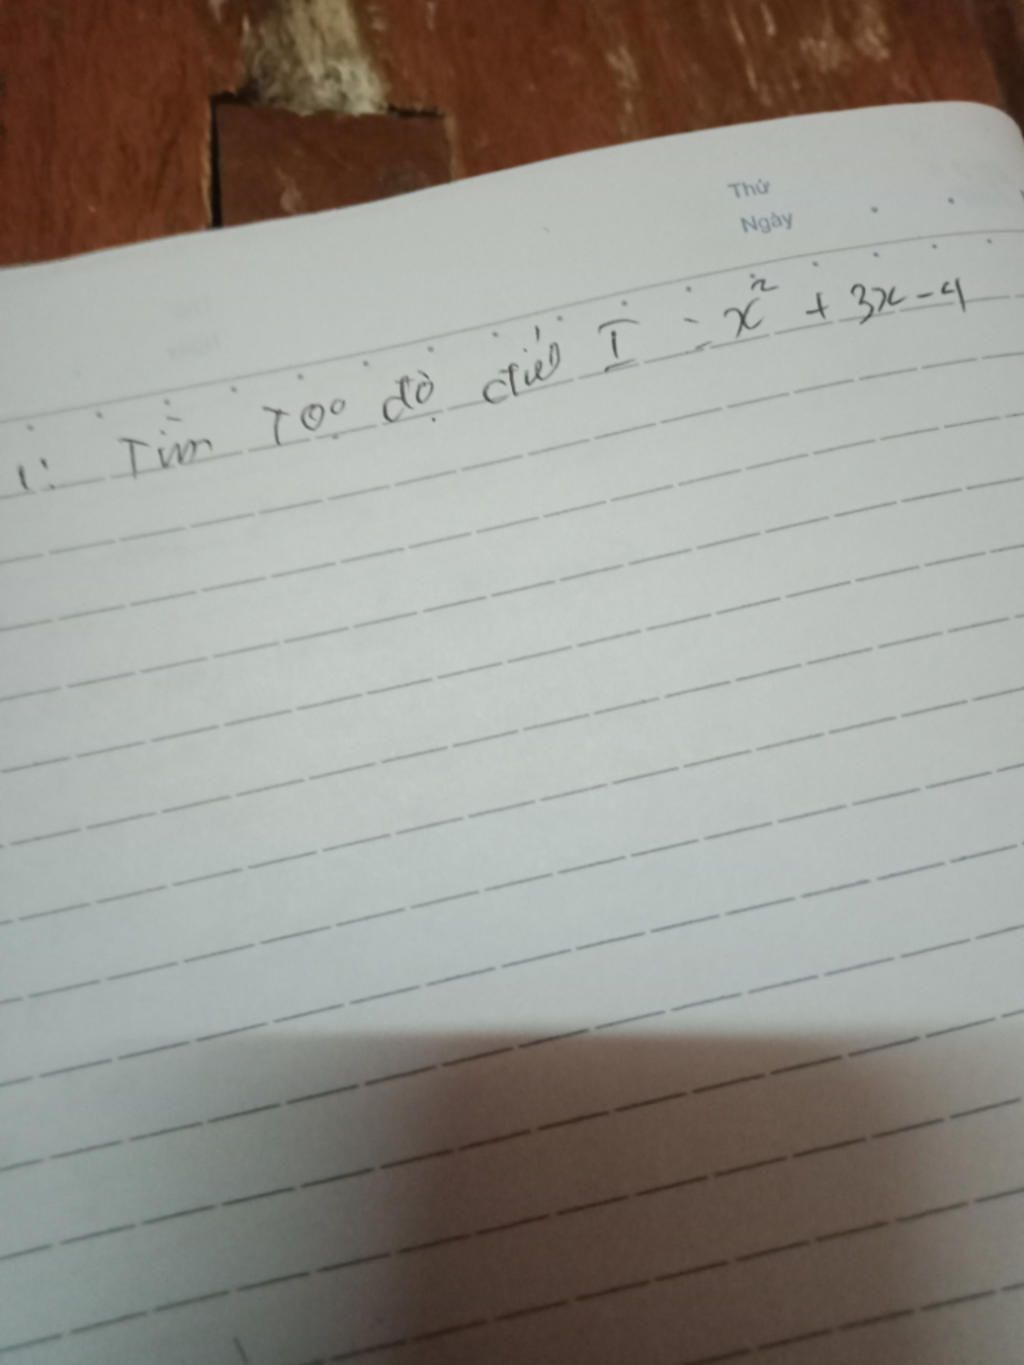 Thứ
Ngày
1: Tìm Tọa độ I : x² + 3x - 4